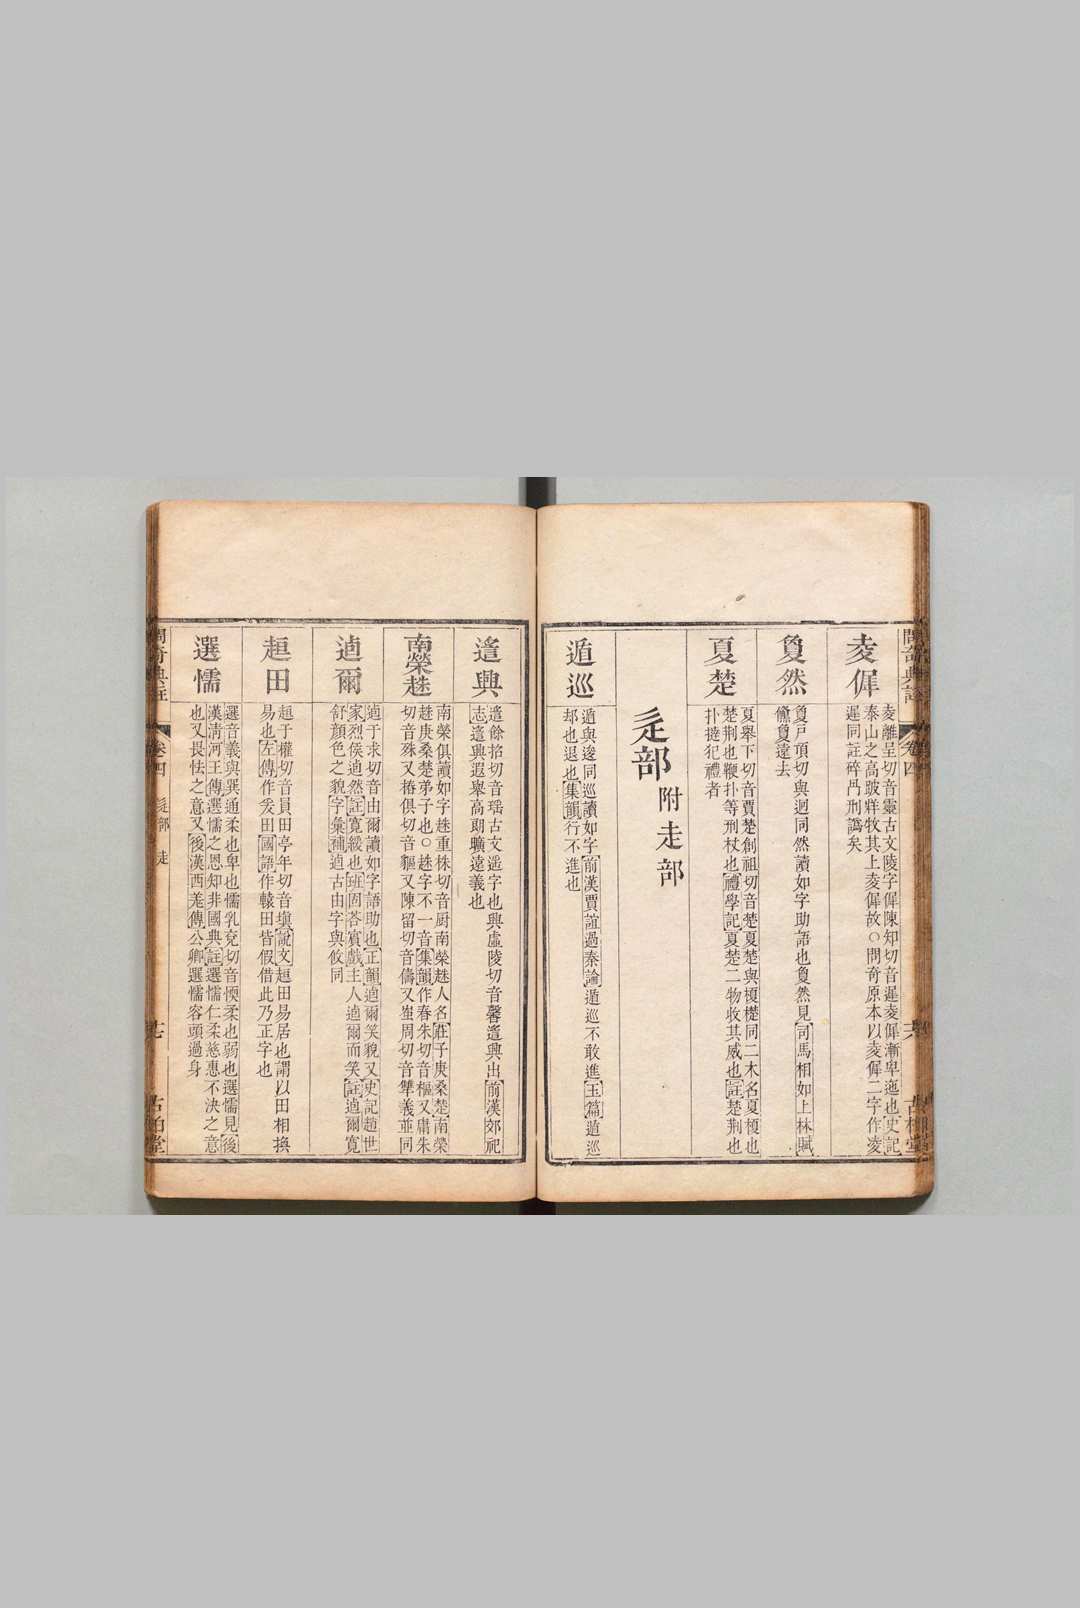 夌徲
夌離呈切音靈古文陵字徲陳知切音遲夌徲漸卑迤也史記
泰山之高跛牂牧其上夌徲故○問奇原本以夌徲二字作夌
遲同註碎凸刑譌矣
夐然
夐戸頂切與迥同然讀如字助語也夐然見司馬相如上林賦
儵夐遠去
夏楚
夏舉下切音賈楚創祖切音楚夏楚與榎檚同二木名夏榎也
楚荆也鞭扑等刑杖也禮學記夏楚二物收其威也註楚荆也
扑撻犯禮者
辵部附走部
遁巡
遁與逡同巡讀如字前漢賈誼過秦論遁巡不敢進玉篇遁巡
却也退也集韻行不進也
遙興
遙餘招切音瑶古文遥字也興虛陵切音馨遙興出前漢郊祀
志遙興遐舉高朗曠遠義也
南榮趎
南榮俱讀如字趎重株切音厨南榮趎人名莊子庚桑楚南榮
趎庚桑楚弟子也○趎字不一音集韻作春朱切音樞又庸朱
切音殊又樁俱切音貙又陳留切音儔又蚩周切音犨義並同
逌爾
逌于求切音由爾讀如字語助也正韻逌爾笑貌又史記趙世
家烈侯逌然註寬緩也班固荅賓戲主人逌爾而笑註逌爾寬
舒顔色之貌字彙補逌古由字與攸同
趄田
趄于權切音員田亭年切音塡說文趄田易居也謂以田相換
易也左傳作爰田國語作轅田皆假借此乃正字也
選懦
選音義與巽通柔也卑也懦乳兗切音愞柔也弱也選懦見後
漢清河王傳選懦之恩知非國典註選懦仁柔慈惠不決之意
也又畏怯之意又後漢西羌傳公卿選懦容頭過身
問奇典註 卷四 辵部 走 七 古柏堂